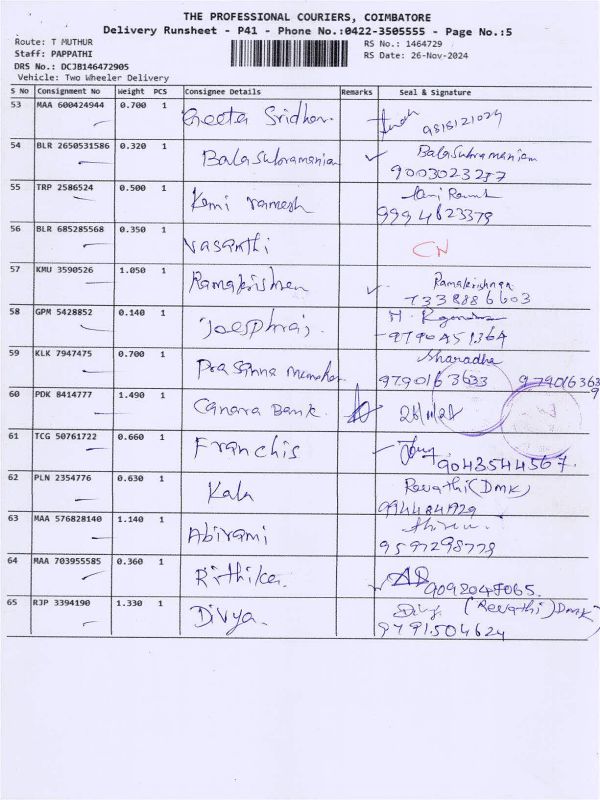 THE PROFESSIONAL COURIERS, COIMBATORE
Delivery Runsheet - P41 - Phone No.:0422-3505555 - Page No.:5
Route: T MUTHUR
Staff: PAPPATHI
DRS No.: DCJB146472905
Vehicle: Two Wheeler Delivery
RS No.: 1464729
RS Date: 26-Nov-2024
S No Consignment No Weight PCS Consignee Details Remarks Seal & Signature
53 MAA 600424944 0.700 1 Geeta Sridhar
54 BLR 2650531586 0.320 1 Balasubramanian Balasubramaniam
9003023237
55 TRP 2586524 0.500 1 Kami ramesh
9994623379
56 BLR 685285568 0.350 1 Vasanthi CN
57 KMU 3590526 1.050 1 Ramakrishnan Ramakrishnan
7338886603
58 GPM 5428852 0.140 1
9790451364
59 KLK 7947475 0.700 1 Prasanna Sharadha
9790163633 979016363
60 PDK 8414777 1.490 1 Canara Bank 26/11/24
61 TCG 50761722 0.660 1 Franchis
9043544567.
62 PLN 2354776 0.630 1 Kala Revathi (DMK)
63 MAA 576828140 1.140 1 Abirami
9597298778
64 MAA 703955585 0.360 1 Rithika
9092047065.
65 RJP 3394190 1.330 1 Divya. (Revathi) DMK)
9791504624